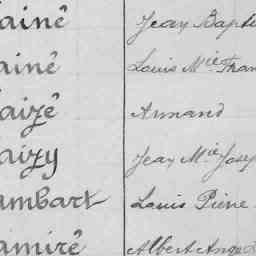 ainé Jean Bapti
ainé Louis Mie Fran
aizé Armand
aizy Jean Mie Josep
ambart Louis Pierre
amiré Albert Ange